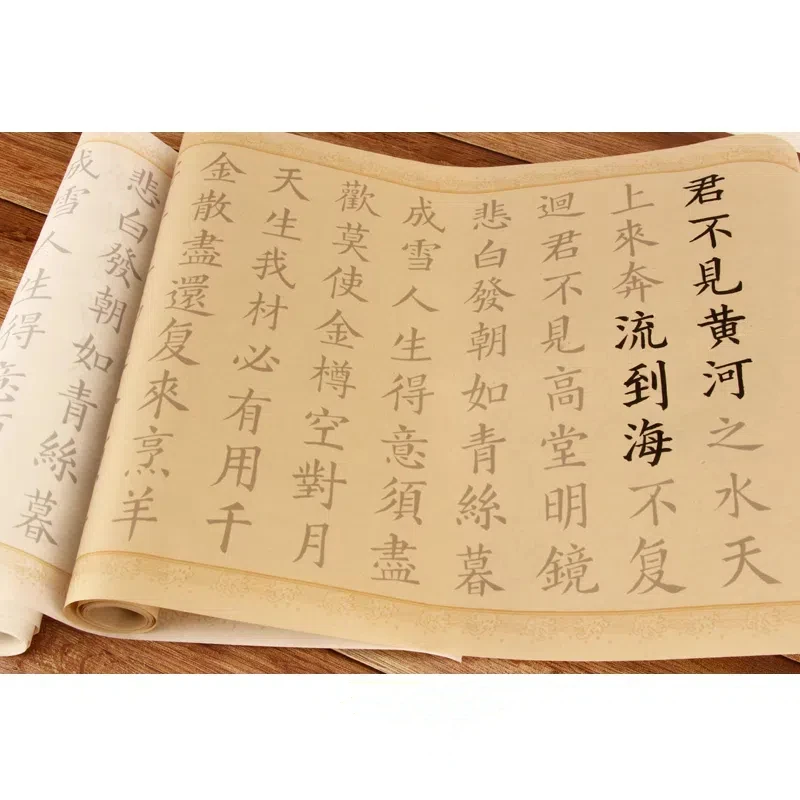 君不見黄河之水天
上來奔流到海不复
迴君不見高堂明鏡
悲白發朝如青絲暮
成雪人生得意須盡
歡莫使金樽空對月
天生我材必有用千
金散盡還复來烹羊
悲白發朝如青絲暮
成雪人生得意